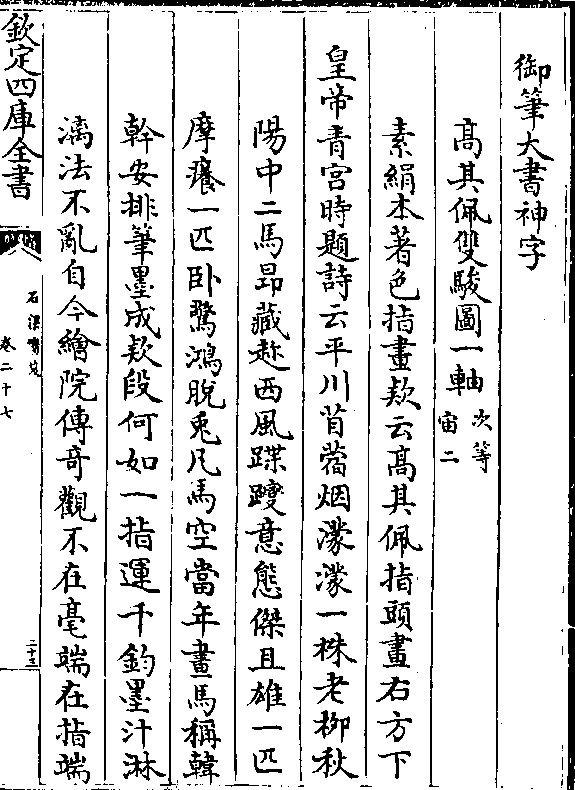 御筆大書神字
髙其佩雙駿圖一軸 次等宙二
素絹本著色指畫欵云髙其佩指頭畫右方下
皇帝青宫時題詩云平川苜蓿烟濛濛一株老栁秋
陽中二馬昻藏趂西風蹀躞意態傑且雄一匹
摩癢一匹卧驚鴻脫兎凡馬空當年畫馬稱韓
幹安排筆墨成欵段何如一指運千鈞墨汁淋
漓法不亂自今繪院傳奇觀不在毫端在指端
欽定四庫全書
石渠寶笈
卷二十七
二十三